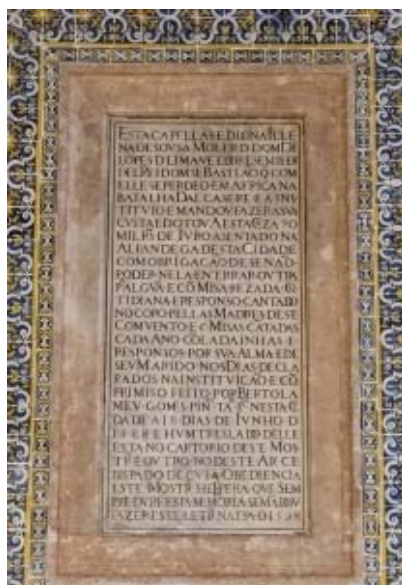 ESTA CAPELLA E E DIONA ILLE
NA DE SOVSA MOLER D DOM DI
LOPES D LIMA
DEL REI DOM SEBASTIAO Q COM
ELLE SE PERDEO EM AFFRICA NA
BATALHA DALCASERE E A INS
TITVIO E MANDOV FAZER A SVA
CVSTA E DOTOV A ESTA CAZA 90
MIL RS DE IVRO ASENTADO NA
ALFANDEGA DESTA CIDADE
COM OBRIGACAO DE SE NAO
PODER NELA ENTERRAR OVTRA
PALGVA E CO MISA REZADA COTI
DIANA E RESPONSO CANTADO
NO COPO PELLAS MADRES DESTE
COMVENTO E MISAS CATADAS
CADA ANO COLADAINHAS E
RESPONSOS POR SVA ALMA E DE
SEV MARIDO NOS DIAS DECLA
RADOS NA INSTITVICAO E CO
PRIMISO FEITO POR BERTOLA
MEV GOMES PINTA NESTA CI
DADE A DIAS DE IVNHO D
E HVM TRESLADO DELLE
ESTA NO CARTORIO DESTE MOS
TRE OVTRO NO DESTE ARCE
BISPADO DE CVIA OBEDIENCIA
ESTE MOSTRE HE PERA QVE SEM
PRE DVRE ESTA MEMORIA SE MADOV
FAZER ESTE LETR